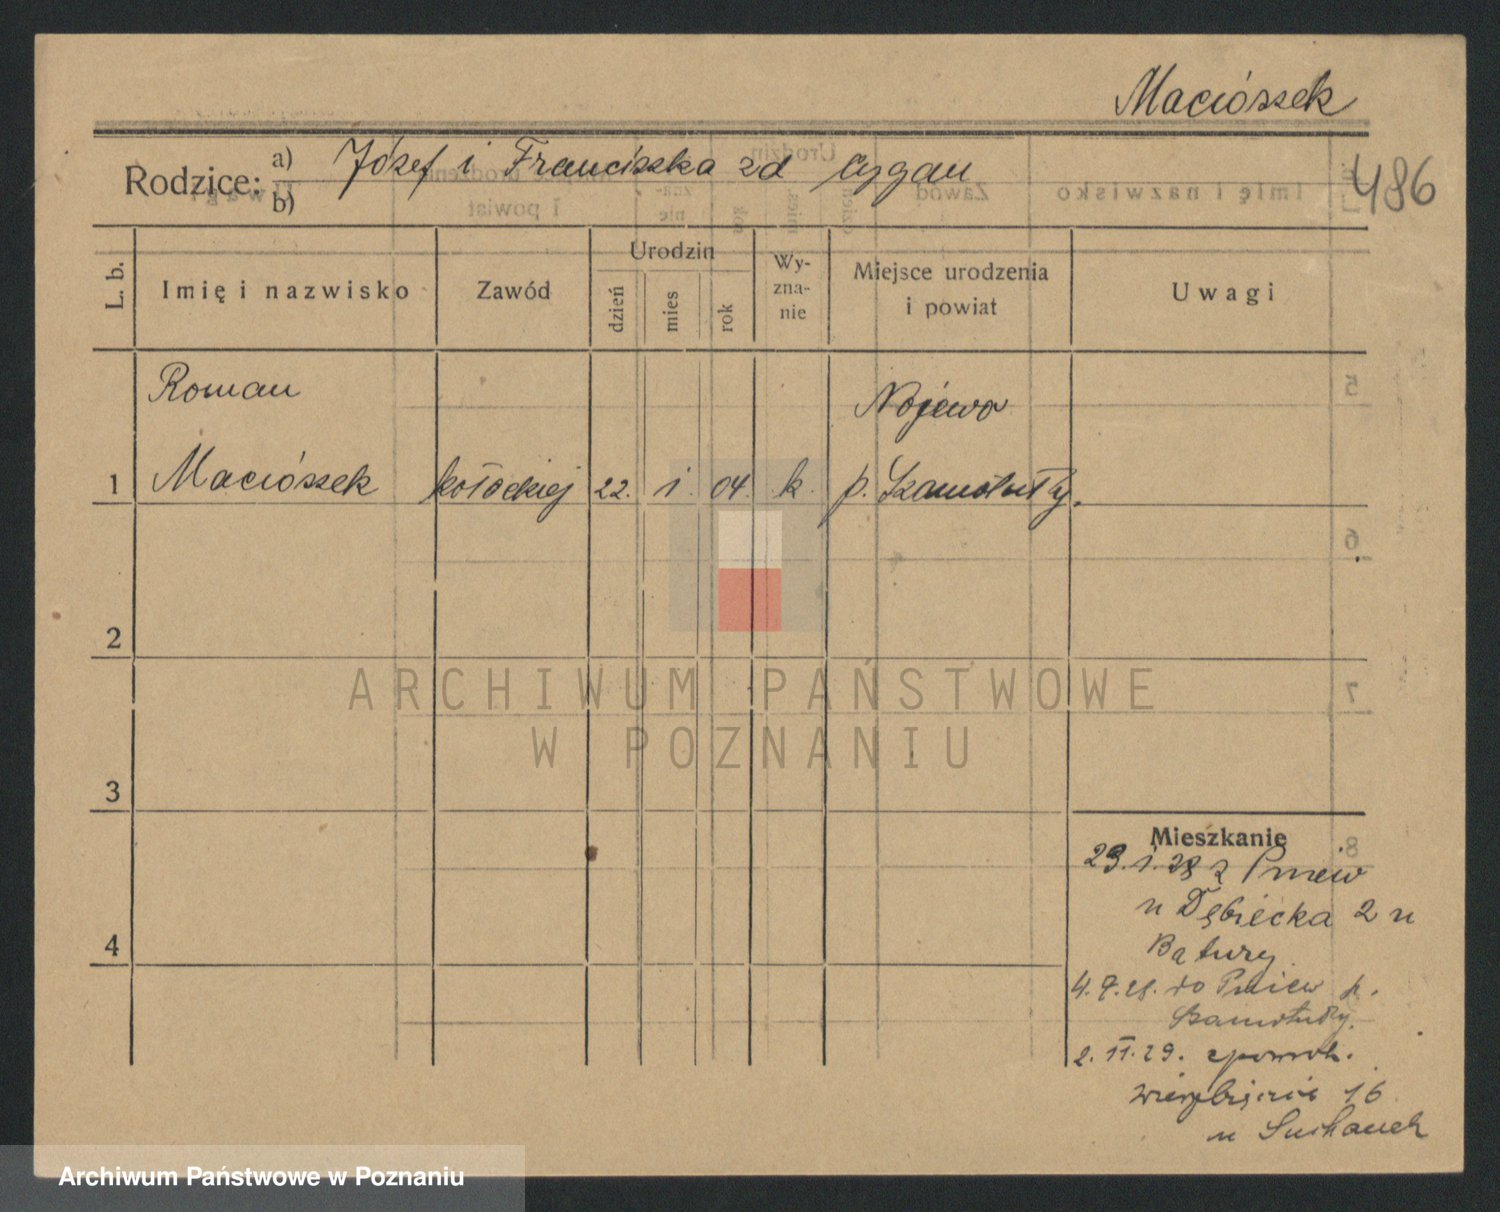 Maciószek
486
Rodzice: a) Józef i Franciszka zd Cygan
b)
L. b.
Imię i nazwisko
Zawód
Urodzin
dzień
mies
rok
Wy-
zna-
nie
Miejsce urodzenia
i powiat
Uwagi
Roman
Nojewo
1 Maciószek kołodziej 22. 1. 04. k. p. Szamotuły.
2
3
4
Mieszkanie
29.1.28 z Pniew
u Dębiecka 2 u
Batury
4.9.28. do Pniew p.
Szamotuły.
2.11.29. zpowrot.
Wierzbięcice 16
u Suchanek
ARCHIWUM PAŃSTWOWE
W POZNANIU
Archiwum Państwowe w Poznaniu